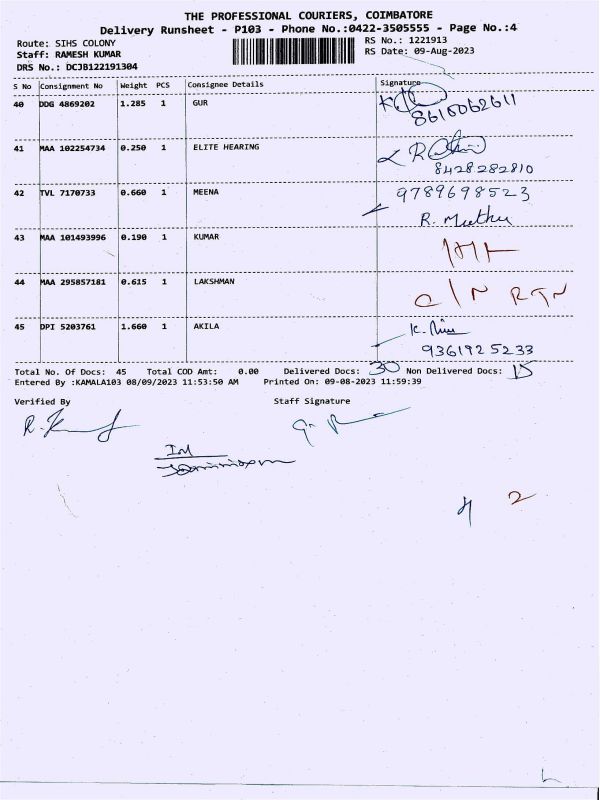 THE PROFESSIONAL COURIERS, COIMBATORE
Delivery Runsheet - P103 - Phone No.:0422-3505555 - Page No.:4
Route: SIHS COLONY
RS No.: 1221913
Staff: RAMESH KUMAR
RS Date: 09-Aug-2023
DRS No.: DCJB122191304
S No Consignment No Weight PCS Consignee Details Signature
40 DDG 4869202 1.285 1 GUR
8616062611
41 MAA 102254734 0.250 1 ELITE HEARING
8428282810
42 TVL 7170733 0.660 1 MEENA 9789698523
R. Muthu
43 MAA 101493996 0.190 1 KUMAR
44 MAA 295857181 0.615 1 LAKSHMAN
C/N RTN
45 DPI 5203761 1.660 1 AKILA
9361925233
Total No. Of Docs: 45 Total COD Amt: 0.00 Delivered Docs: 30 Non Delivered Docs: 15
Entered By :KAMALA103 08/09/2023 11:53:50 AM Printed On: 09-08-2023 11:59:39
Verified By Staff Signature
2